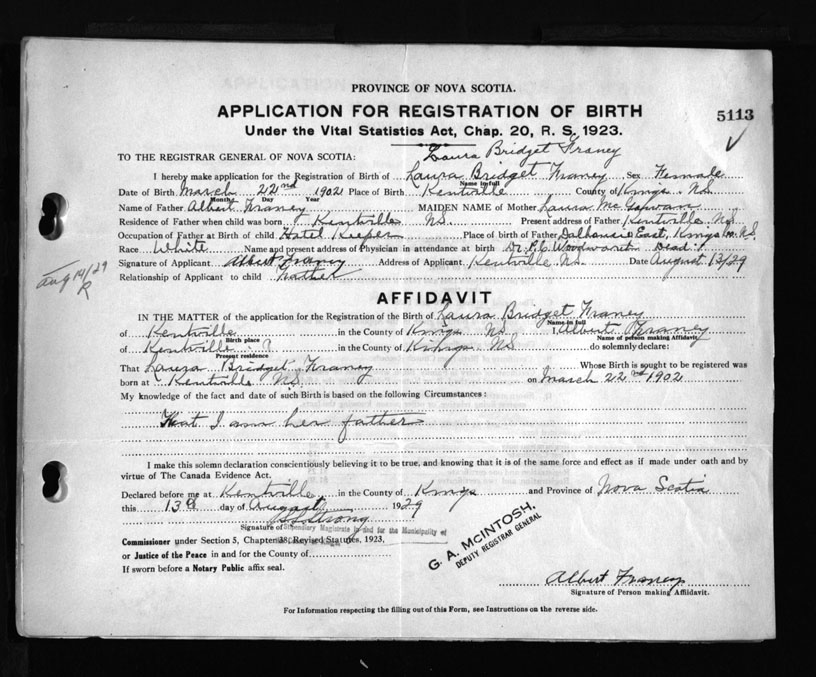 PROVINCE OF NOVA SCOTIA.
APPLICATION FOR REGISTRATION OF BIRTH
5113
Under the Vital Statistics Act, Chap. 20, R. S. 1923.
Laura Bridget Franey
TO THE REGISTRAR GENERAL OF NOVA SCOTIA:
I hereby make application for the Registration of Birth of Laura Bridget Franey Sex Female
Name in full
Date of Birth March 22nd 1902 Place of Birth Kentville County of Kings N.S.
Month Day Year
Name of Father Albert Franey MAIDEN NAME of Mother Laura McGowan
Residence of Father when child was born Kentville N.S. Present address of Father Kentville N.S.
Occupation of Father at Birth of child Hotel Keeper Place of birth of Father Dalhousie East, Kings Co. N.S.
Race White Name and present address of Physician in attendance at birth Dr. Woodworth Dead
Signature of Applicant Albert Franey Address of Applicant Kentville N.S. Date August 13/29
Aug 14/29
R
Relationship of Applicant to child Father
AFFIDAVIT
IN THE MATTER of the application for the Registration of the Birth of Laura Bridget Franey
Name in full
of Kentville in the County of Kings N.S. I, Albert Franey
Birth place Name of person making Affidavit.
of Kentville in the County of Kings N.S. do solemnly declare:
Present residence
That Laura Bridget Franey Whose Birth is sought to be registered was
born at Kentville N.S. on March 22nd 1902
My knowledge of the fact and date of such Birth is based on the following Circumstances:
that I am her father
I make this solemn declaration conscientiously believing it to be true, and knowing that it is of the same force and effect as if made under oath and by
virtue of The Canada Evidence Act.
Declared before me at Kentville in the County of Kings and Province of Nova Scotia
this 13th day of August 1929
Signature of Stipendiary Magistrate in and for the Municipality of
Commissioner under Section 3, Chapter 38, Revised Statutes, 1923,
or Justice of the Peace in and for the County of
If sworn before a Notary Public affix seal.
G. A. McINTOSH,
DEPUTY REGISTRAR GENERAL
Albert Franey
Signature of Person making Affidavit.
For Information respecting the filling out of this Form, see Instructions on the reverse side.